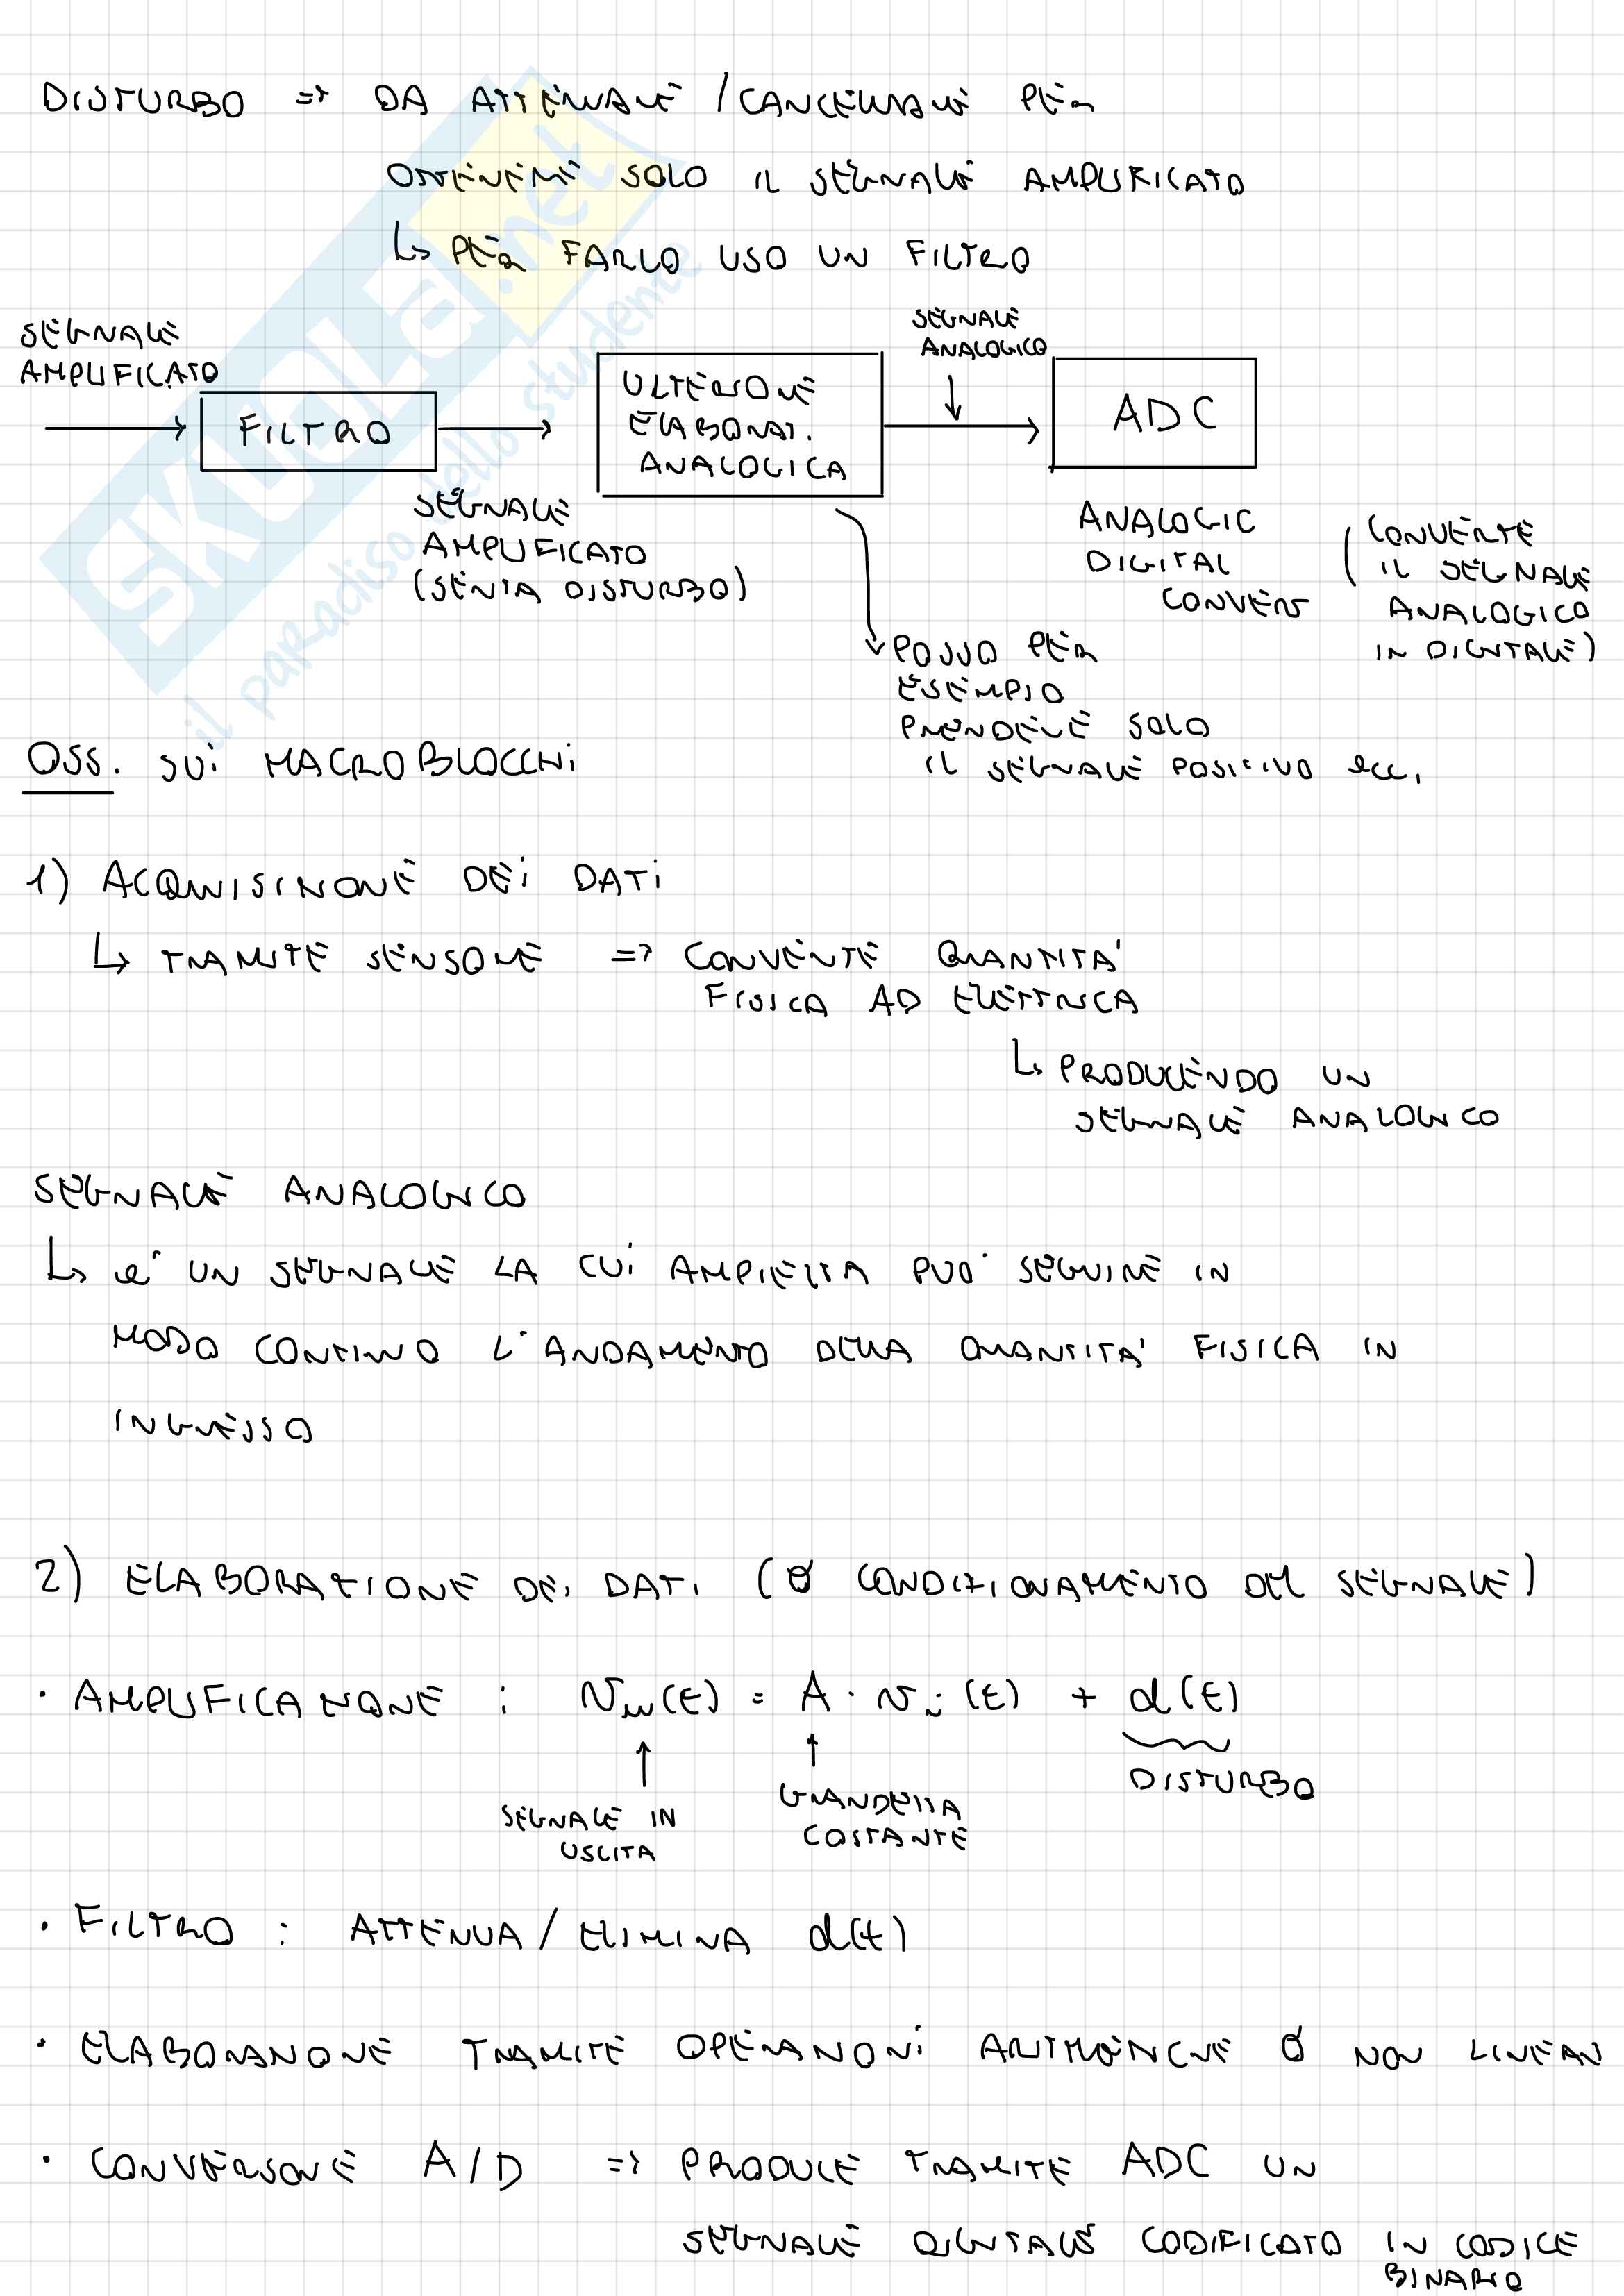 DISTURBO => DA ATTENUARE / CANCELLARE PER
OTTENERE SOLO IL SEGNALE AMPLIFICATO
↳ PER FARLO USO UN FILTRO
SEGNALE
AMPLIFICATO
FILTRO
SEGNALE
AMPLIFICATO
(SENZA DISTURBO)
ULTERIORE
ELABORAZ.
ANALOGICA
SEGNALE
ANALOGICO
ADC
ANALOGIC
DIGITAL
CONVERT
(CONVERTE
IL SEGNALE
ANALOGICO
IN DIGITALE)
POSSO PER
ESEMPIO
PRENDERE SOLO
IL SEGNALE POSITIVO ecc.
OSS. SUi MACROBLOCCHi
1) ACQUISIZIONE DEi DATi
↳ TRAMITE SENSORE => CONVERTE QUANTITA'
FISICA AD ELETTRICA
↳ PRODUCENDO UN
SEGNALE ANALOGICO
SEGNALE ANALOGICO
↳ e' UN SEGNALE LA CUi AMPIEZZA PUO' SEGUIRE IN
MODO CONTINUO L'ANDAMENTO DELLA QUANTITA' FISICA IN
INGRESSO
2) ELABORAZIONE DEi DATi (O CONDIZIONAMENTO DEL SEGNALE)
• AMPLIFICAZIONE : Vu(t) = A · Vi(t) + d(t)
SEGNALE IN
USCITA
GRANDEZZA
COSTANTE
DISTURBO
• FILTRO : ATTENUA / ELIMINA d(t)
• ELABORAZIONE TRAMITE OPERAZIONi ARITMETICHE O NON LINEARI
• CONVERSIONE A/D => PRODUCE TRAMITE ADC UN
SEGNALE DIGITALE CODIFICATO IN CODICE
BINARIO
SKUOLa.net
il paradiso dello studente